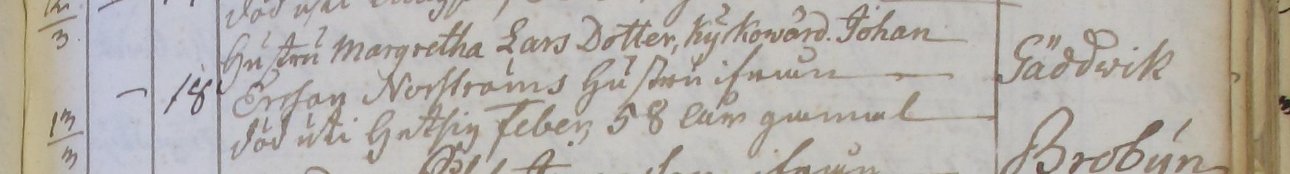 död uti
Hustru Margretha Lars Dotter, kyrkovärd. Johan
18 Ersson Norströms Hustru ifrån Gäddwik
död uti Hetsig feber, 58 åhr gammal
13/3
ifrån Brobÿn